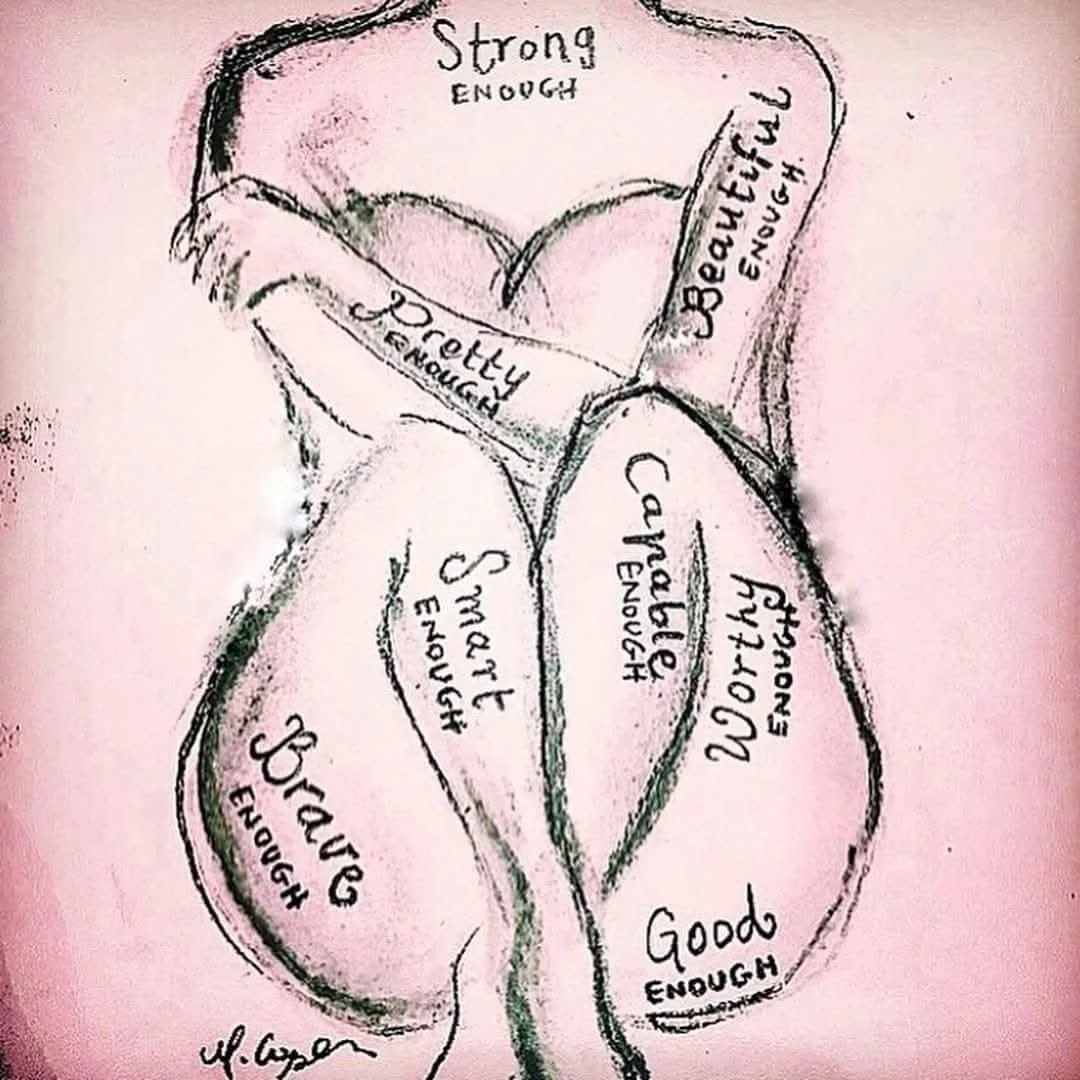 Strong
ENOUGH
Beautiful
ENOUGH
Pretty
ENOUGH
Capable
ENOUGH
Smart
ENOUGH
Worthy
ENOUGH
Brave
ENOUGH
Good
ENOUGH